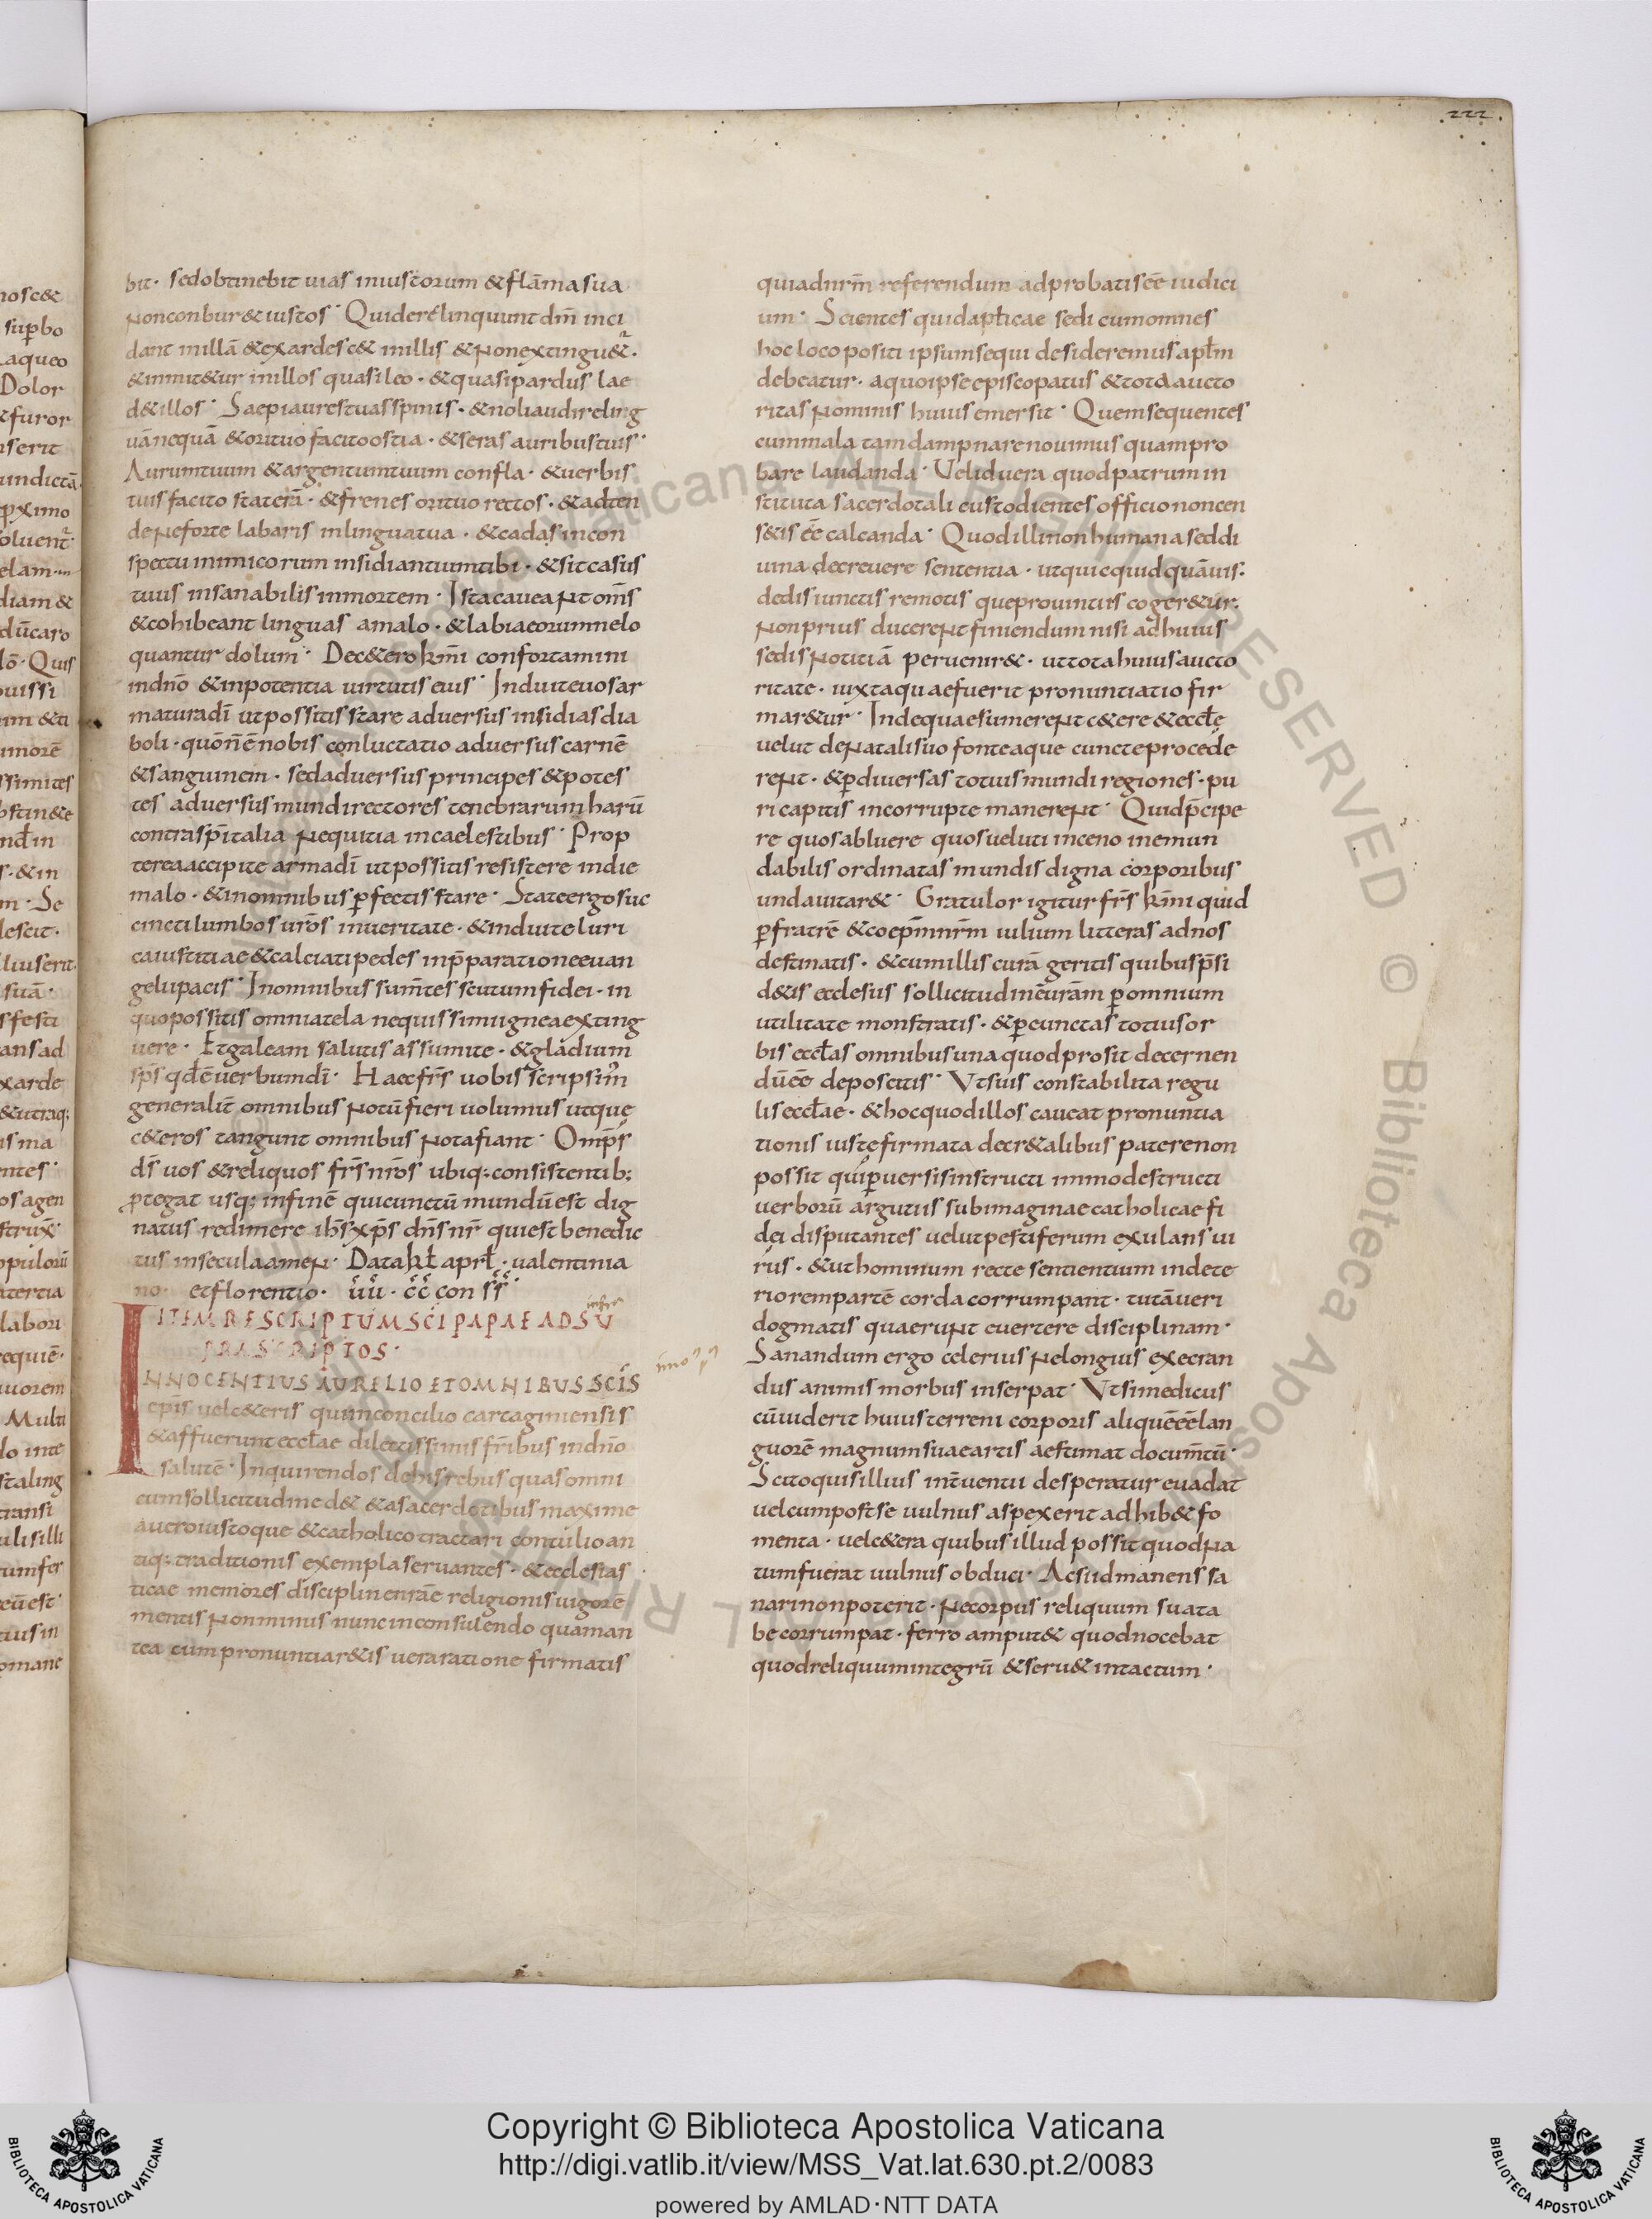 222.
bit· sed obtinebit uias iniustorum & flāma sua
non conbur& iustos· Qui derelinquunt dn̄m inci
dant in illā & exardesc& in illis & non extingu&ur·
& inmit&ur in illos quasi leo· & quasi pardus lae
d& illos· Saepi aures tuas spinis· & noli audire ling
uā nequā & ori tuo facito ostia· & seras auribus tuis·
Aurum tuum & argentum tuum confla· & uerbis
tuis facito staterā· & frenes ori tuo rectos· & adten
de ne forte labaris in lingua tua· & cadas in con
spectu inimicorum insidiantium tibi· & sit casus
tuus insanabilis in mortem· Ista caueant om̄s
& cohibeant linguas a malo· & labia eorum ne lo
quantur dolum· De c&ero km̄i confortamini
in dn̄o & in potentia uirtutis eius· Induite uos ar
matura dī ut possitis stare aduersus insidias dia
boli· quōn̄ ē nobis conluctatio aduersus carnē
& sanguinem· sed aduersus principes & potes
tes aduersus mundi rectores tenebrarum harū
contra sp̄italia nequitia in caelestibus· Prop
terea accipite arma dī ut possitis resistere in die
malo· & in omnibus p̄fectis stare· State ergo suc
cincti lumbos ur̄os in ueritate· & induite luri
ca iustitiae & calciati pedes in p̄paratione euan
gelii pacis· In omnibus sum̄tes scutum fidei· in
quo possitis omnia tela nequissimi ignea exting
uere· Et galeam salutis assumite· & gladium
sp̄s qd̄ ē uerbum dī· Haec fr̄s uobis scripsim̄
generalit̄ omnibus notū fieri uolumus ut que
c&eros tangunt omnibus nota fiant· Omp̄s
dī uos & reliquos fr̄s nr̄os ubiq; consistentib;
p̄tegat usq; in finē qui cunctū mundū est dig
natus redimere ih̄s xp̄s dn̄s nr̄ qui est benedic
tus in secula amen· Data kł aprł· ualentinia
no· et florentio· uū· cc̄ con ss̄
ITEM RESCRIPTUM SC̄I PAPAE AD SU
infra
PRASCRIPTOS·
INNOCENTIUS AURELIO ET OMNIBUS SC̄IS
ep̄is uel c&eris qui in concilio cartaginiensis
& affuerunt eccłae dilectissimis fr̄ibus in dn̄o
salutē· Inquirendos de his rebus quas omni
cum sollicitudine d& & a sacerdotibus maxime
a uero iustoque & catholico tractari contilio an
tiq; traditionis exempla seruantes· & ecclesias
ticae memores disciplin en̄rae religionis uigorē
mentis non minus nunc in consulendo quam an
tea cum pronuntiar&is uera ratione firmatis
qui ad nr̄m referendum adprobatis eē iudici
um· Scientes quid apłicae sedi cum omnes
hoc loco positi ipsum sequi desideremus apłm
debeatur· a quo ipse episcopatus & tota aucto
ritas nominis huius emersit· Quem sequentes
cum mala tam dampnare nouimus quam pro
bare laudanda· Uel id uera quod patrum in
stituta sacerdotali custodientes officio non cen
s&is eē calcanda· Quod illi non humana sed di
uina decreuere sententia· ut quicquid quāuis·
de disiunctis remotisque prouintiis coger&ur·
non prius ducerent finiendum nisi ad huius
sedis notitiā peruenir&· ut tota huius aucto
ritate· iuxta quae fuerit pronuntiatio fir
mar&ur· Indequae sumerent c&ere & eccłę
uelut de natali suo fonte aque cuncte procede
rent· & p̄ diuersas totius mundi regiones· pu
ri capitis incorrupte manerent· Quid p̄cipe
re quos abluere quos ueluti in ceno inemun
dabilis ordinatas mundis digna corporibus
unda uitar&· Gratulor igitur fr̄s km̄i quid
p̄ fratrē & coep̄m nr̄m iulium litteras ad nos
destinatis· & cum illis curā geritis quibus p̄si
d&is ecclesiis sollicitudinē curām p̄ omnium
utilitate monstratis· & p̄ cunctas totius or
bis eccłas omnibus una quod prosit decernen
dū eē deposcitis· Ut suis constabilita regu
lis eccłae· & hoc quod illos caueat pronuntia
tionis iuste firmata decr&alibus patere non
possit qui p̄uersis instructi immo destructi
uerborū argutiis sub imaginae catholicae fi
dei disputantes uelut pestiferum exulans ui
rus· & ut hominum recte sentientium in dete
riorem partē corda corrumpant· tutā ueri
dogmatis quaerunt euertere disciplinam·
Sanandum ergo celerius ne longius execran
dus animis morbus inserpat· Ut si medicus
cū uiderit huius terreni corporis aliquē eē lan
guorē magnum suae artis aestimat docum̄tū·
Sci to quis illius int̄uentu desperatur euadat
uel cum post se uulnus aspexerit adhib& fo
menta· uel c&era quibus illud possit quod na
tum fuerat uulnus obduci· Ac si id manens sa
nari non poterit· ne corpus reliquum sua ta
be corrumpat· ferro amput& quod nocebat
quod reliquum integrū & seru& intactum·
Copyright © Biblioteca Apostolica Vaticana
http://digi.vatlib.it/view/MSS_Vat.lat.630.pt.2/0083
powered by AMLAD·NTT DATA
BIBLIOTECA APOSTOLICA VATICANA
BIBLIOTECA APOSTOLICA VATICANA